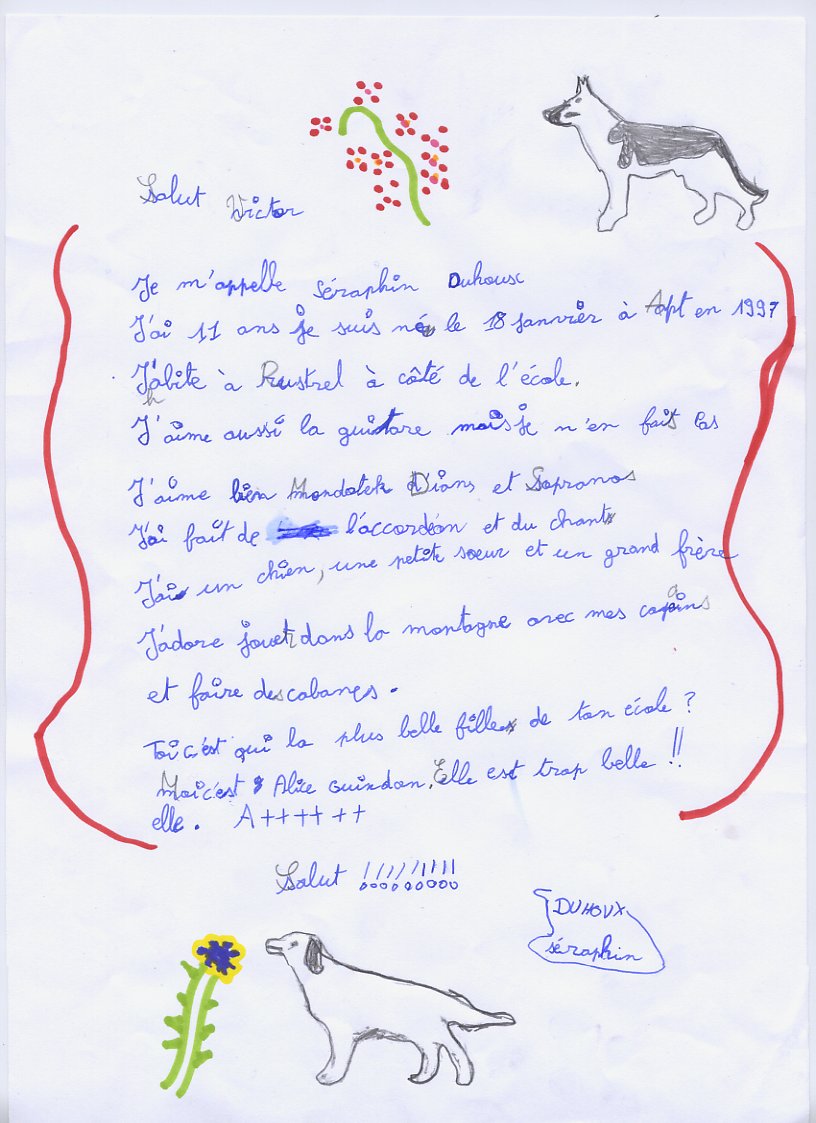 Salut Victor
Je m'appelle Séraphin Duhoux
J'ai 11 ans je suis né le 18 janvier à Apt en 1997
J'habite à Rustrel à côté de l'école.
J'aime aussi la guitare mais je n'en fais pas
J'aime bien Mondotek Dians et Sopranos
J'ai fait de l'accordéon et du chant
J'ai un chien, une petite soeur et un grand frère
J'adore jouer dans la montagne avec mes copains
et faire des cabanes.
Toi c'est qui la plus belle fille de ton école ?
Moi c'est Alice Guindon. Elle est trop belle !!
elle. A++++++
Salut !!!!!!!!!
DUHOUX
séraphin